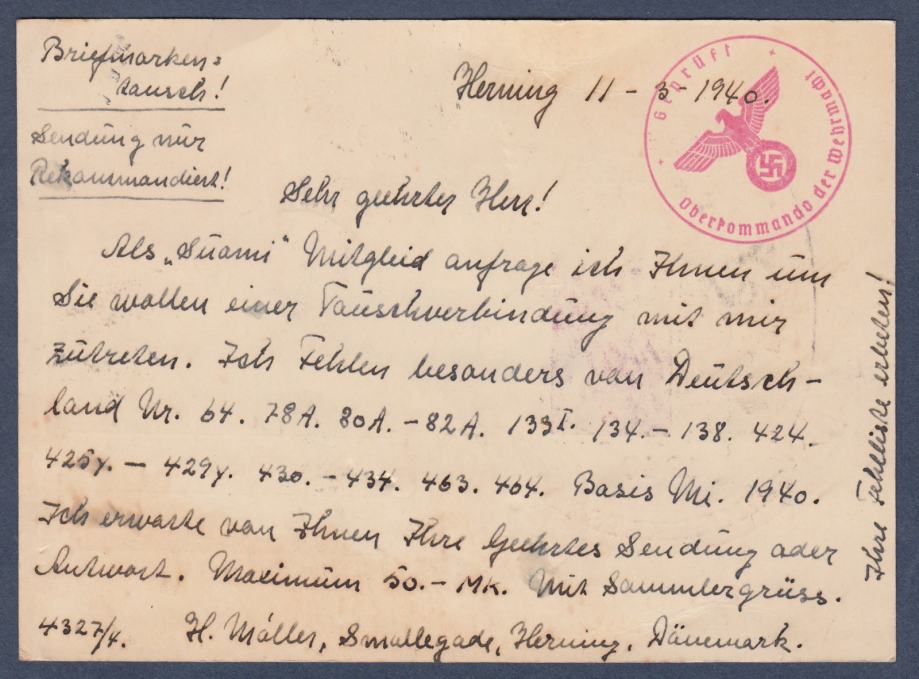 Briefmarken=
tausch!
Sendung nur
Rekammandiert!
Herning 11 - 3 - 1940.
Geprüft
Oberkommando der Wehrmacht
Sehr geehrter Herr!
Als „Suami" Mitglied anfrage ich Ihnen um
Sie wollen einer Tauschverbindung mit mir
zutreten. Ich Fehlen besonders van Deutsch-
land Nr. 64. 78A. 80A. - 82A. 133I. 134. - 138. 424.
425y. - 429y. 430. - 434. 463. 464. Basis Mi. 1940.
Ich erwarte van Ihnen Ihre Geehrtes Sendung ader
Antwort. Maximum 50.- Mk. Mit Sammlergrüss.
4327/4. H. Móller, Smallegade, Herning. Dänemark.
Ihre Fehlliste erbeten!